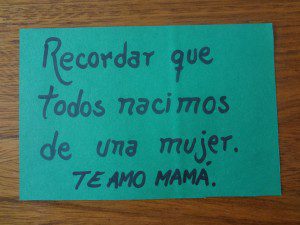 Recordar que
todos nacimos
de una mujer.
TE AMO MAMÁ.